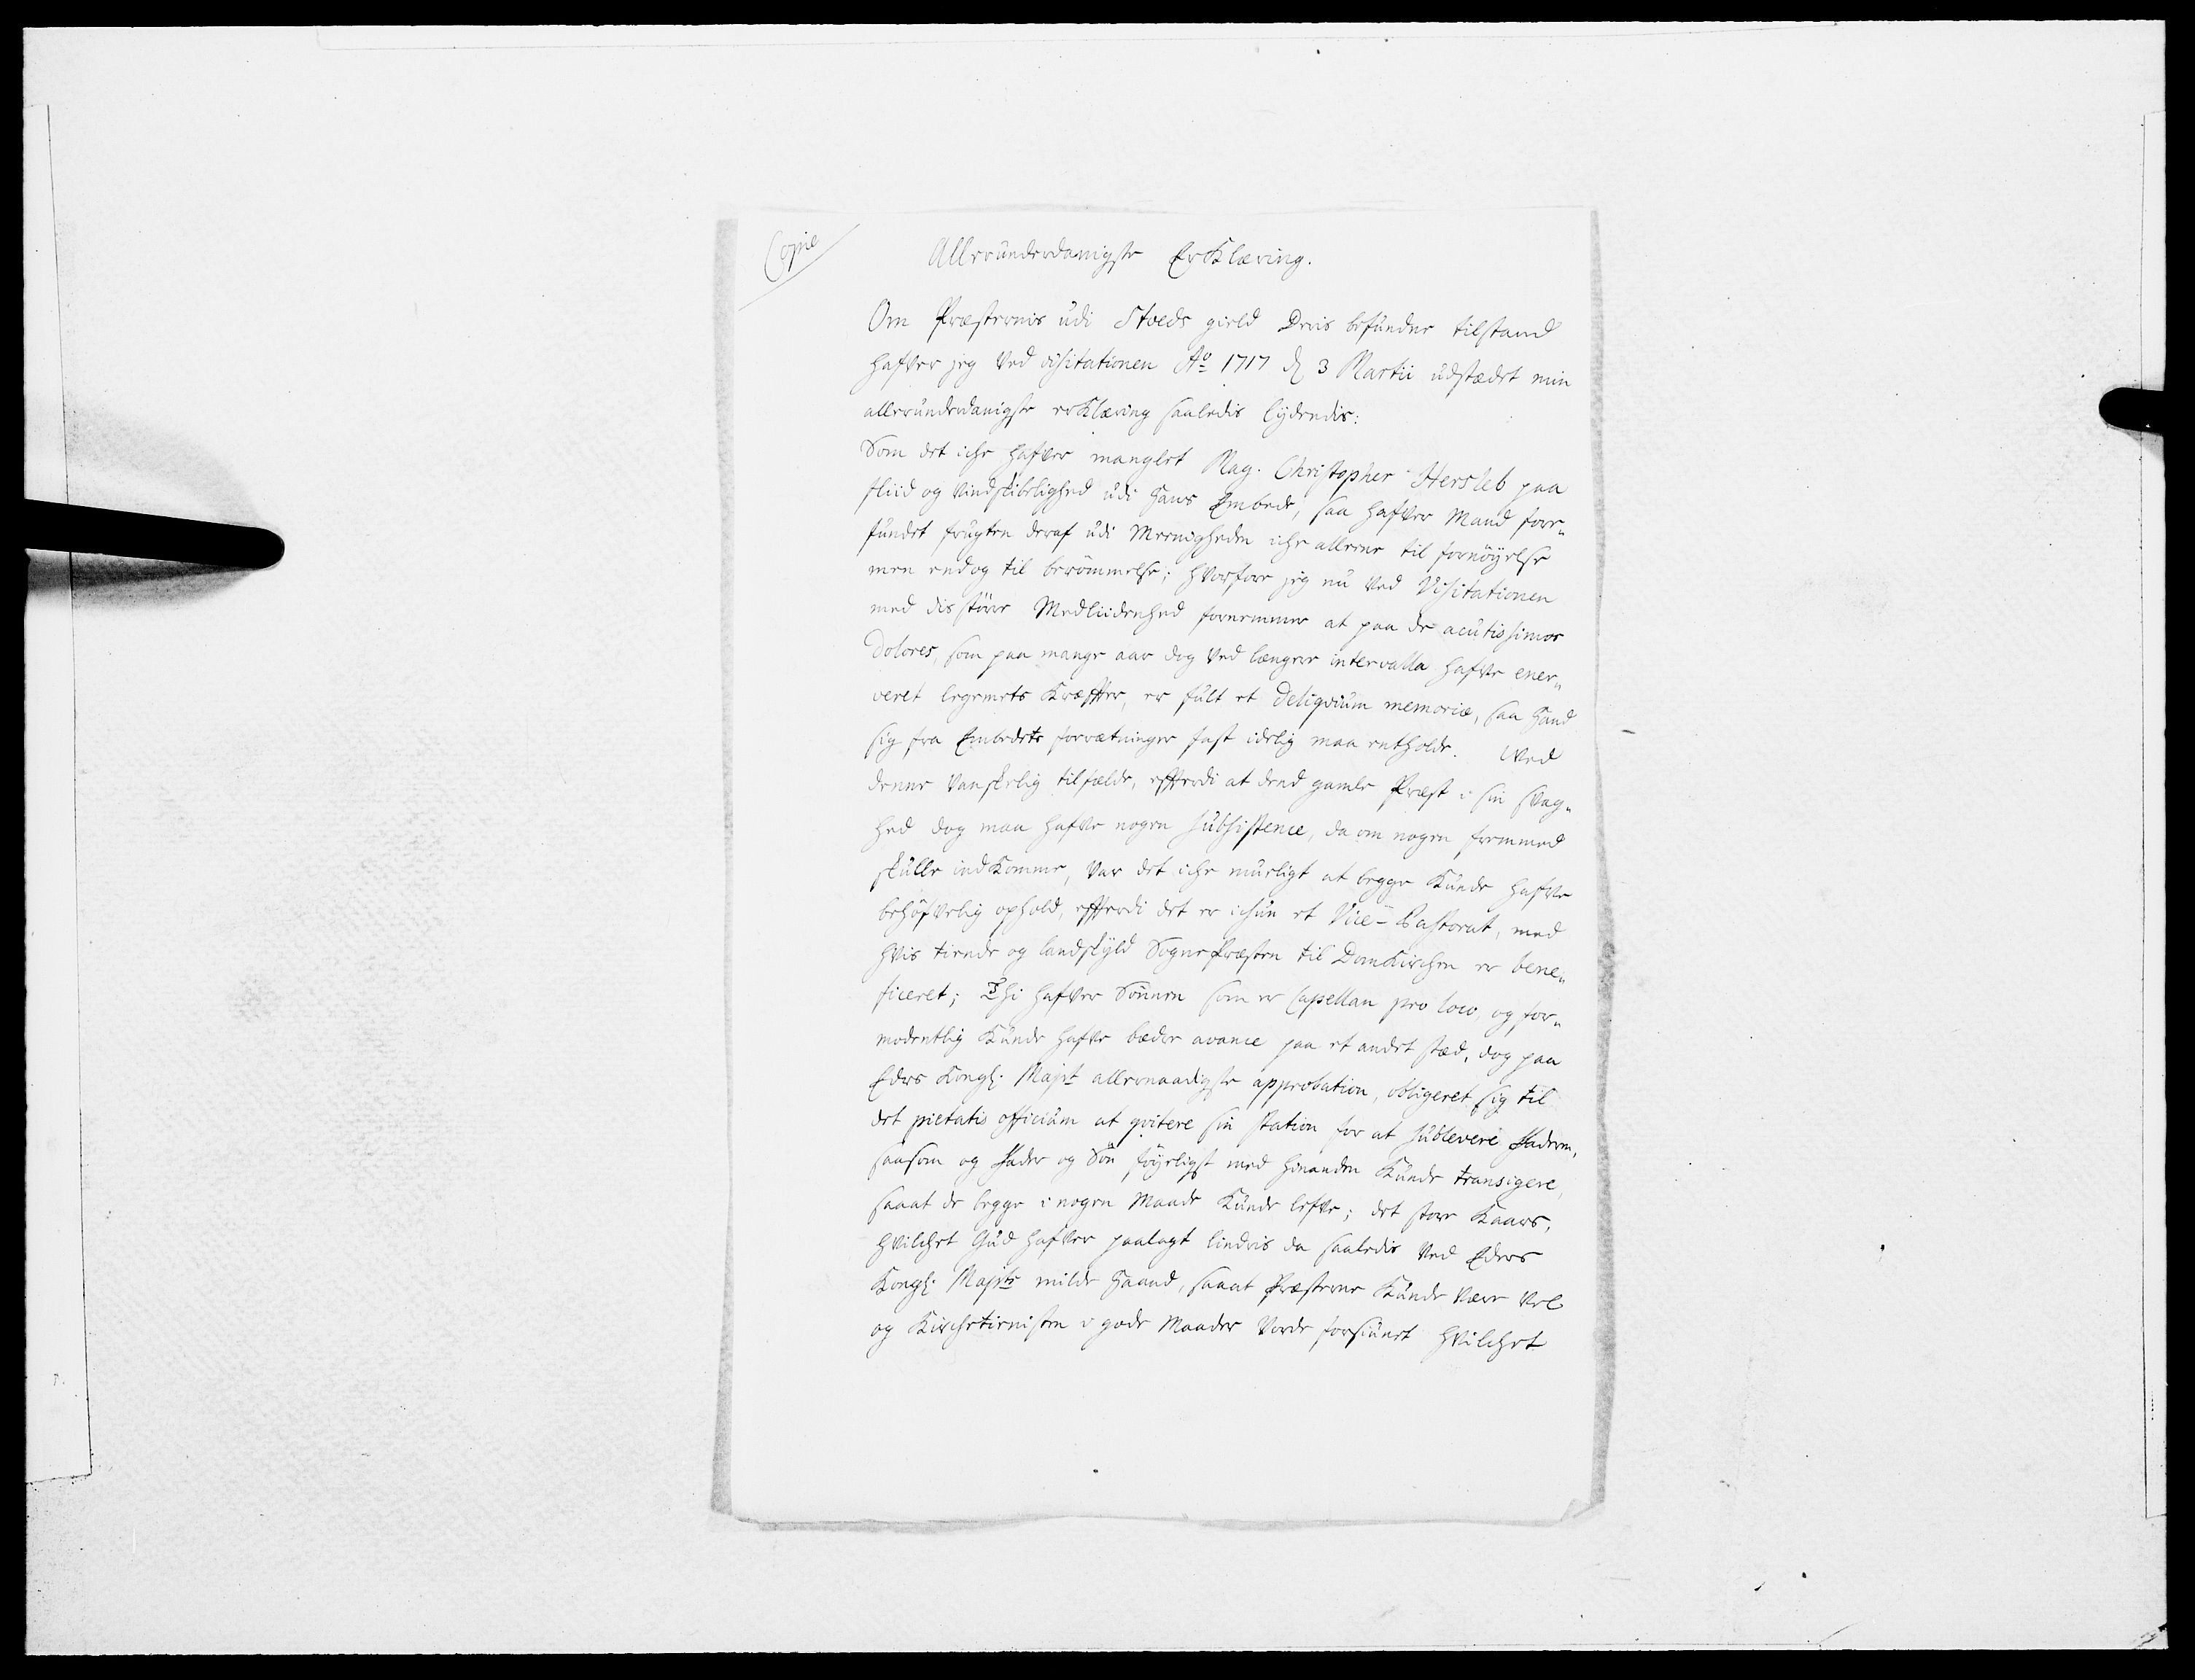 Copie
Allerunderdanigste ErKlæring.
Om Præsternis udi Stoeds gield Deris befundne tilstand
hafver jeg ved visitationen Ao 1717 d 3 Martii udstædt min
allerunderdanigste erKlæring saaledis lydendis:
Som det iche hafver manglet Mag. Christopher Hersleb paa
fliid og vindskibelighed udi Hans Embede, saa hafver Mand for„
fundet frugten deraf udi Meenigheden iche alleene til fornöyelse
men endog til berömmelse; hvorfore jeg nu ved Visitationen
med dis större Medliidenhed fornemmer at paa de acutissimos
Dolores, som paa mange aar dog ved længere intervalla hafve ener„
veret legemets Kræffter, er fult et Deliqvium memoriæ, saa Hand
sig fra Embedets forrætninger fast idelig maa entholde. Ved
denne vanskelig tilfælde, effterdi at dend gamle Præst i sin svag„
hed dog maa hafve nogen subsistence, da om nogen fremmed
skulle indKomme, var det iche mueligt at begge Kunde hafve
behöfvelig ophold, effterdi det er ichun et Vice-Pastorat, med
hvis tiende og landskyld SognePræsten til DomKirchen er bene„
ficeret; Thi hafver Sönnen som er Capellan pro loco, og for„
modentlig Kunde hafve bædre avance paa et andet stæd, dog paa
Eders Kongl: Majt allernaadigste approbation, obligeret sig til
det pietatis officium at qvitere sin station for at sublevere Faderen,
saasom og Fader og Sön föyeligst med hinanden Kunde transigere,
saaat de begge i nogen Maade Kunde lefve; det store Kaars,
hvilchet Gud hafver paalagt lindris da saaledis ved Eders
Kongl: Majts milde Haand, saaat Præsterne Kunde være vel
og Kirchetienisten i gode Maader vorde forsiunet hvilchet